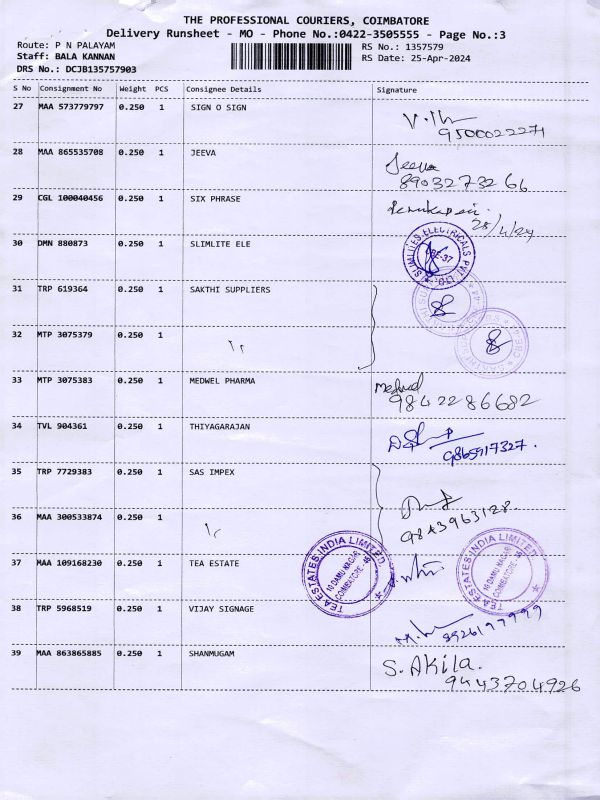 THE PROFESSIONAL COURIERS, COIMBATORE
Delivery Runsheet - MO - Phone No.:0422-3505555 - Page No.:3
Route: P N PALAYAM
Staff: BALA KANNAN
DRS No.: DCJB135757903
RS No.: 1357579
RS Date: 25-Apr-2024
S No Consignment No Weight PCS Consignee Details Signature
27 MAA 573779797 0.250 1 SIGN O SIGN
9500022271
28 MAA 865535708 0.250 1 JEEVA Jeeva
8903273266
29 CGL 100040456 0.250 1 SIX PHRASE
25/4/24
30 DMN 880873 0.250 1 SLIMLITE ELE
SLIMLITES ELECTRICALS PVT LTD
CBE-37
31 TRP 619364 0.250 1 SAKTHI SUPPLIERS
32 MTP 3075379 0.250 1
33 MTP 3075383 0.250 1 MEDWEL PHARMA
9842286682
34 TVL 904361 0.250 1 THIYAGARAJAN
9865917327.
35 TRP 7729383 0.250 1 SAS IMPEX
36 MAA 300533874 0.250 1
9843963128.
37 MAA 109168230 0.250 1 TEA ESTATE
TEA ESTATES INDIA LIMITED
COIMBATORE
TEA ESTATES INDIA LIMITED
COIMBATORE
38 TRP 5968519 0.250 1 VIJAY SIGNAGE
8926197999
39 MAA 863865885 0.250 1 SHANMUGAM S. Akila.
9443704926